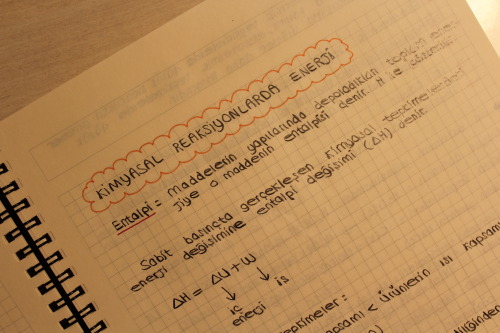 KİMYASAL REAKSİYONLARDA ENERJİ
Entalpi = Maddelerin yapılarında depoladıkları toplam ener-
jiye o maddenin entalpisi denir. H ile gösterilir.
Sabit basınçta gerçekleşen kimyasal tepkimelerdeki
enerji değişimine entalpi değişimi (ΔH) denir.
ΔH = ΔU + W
iç enerji
iş
tepkimeler:
< ürünlerin ısı kapsamı